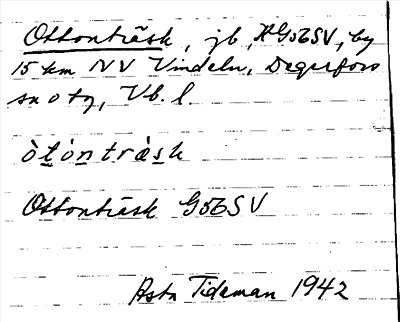 Ottonträsk, jb, HG5bSV, by
15 km NV Vindeln, Degerfors
sn o tg, Vb. l.
òt̲òn̲tràs̲k
Ottonträsk G5bSV
Asta Tideman 1942